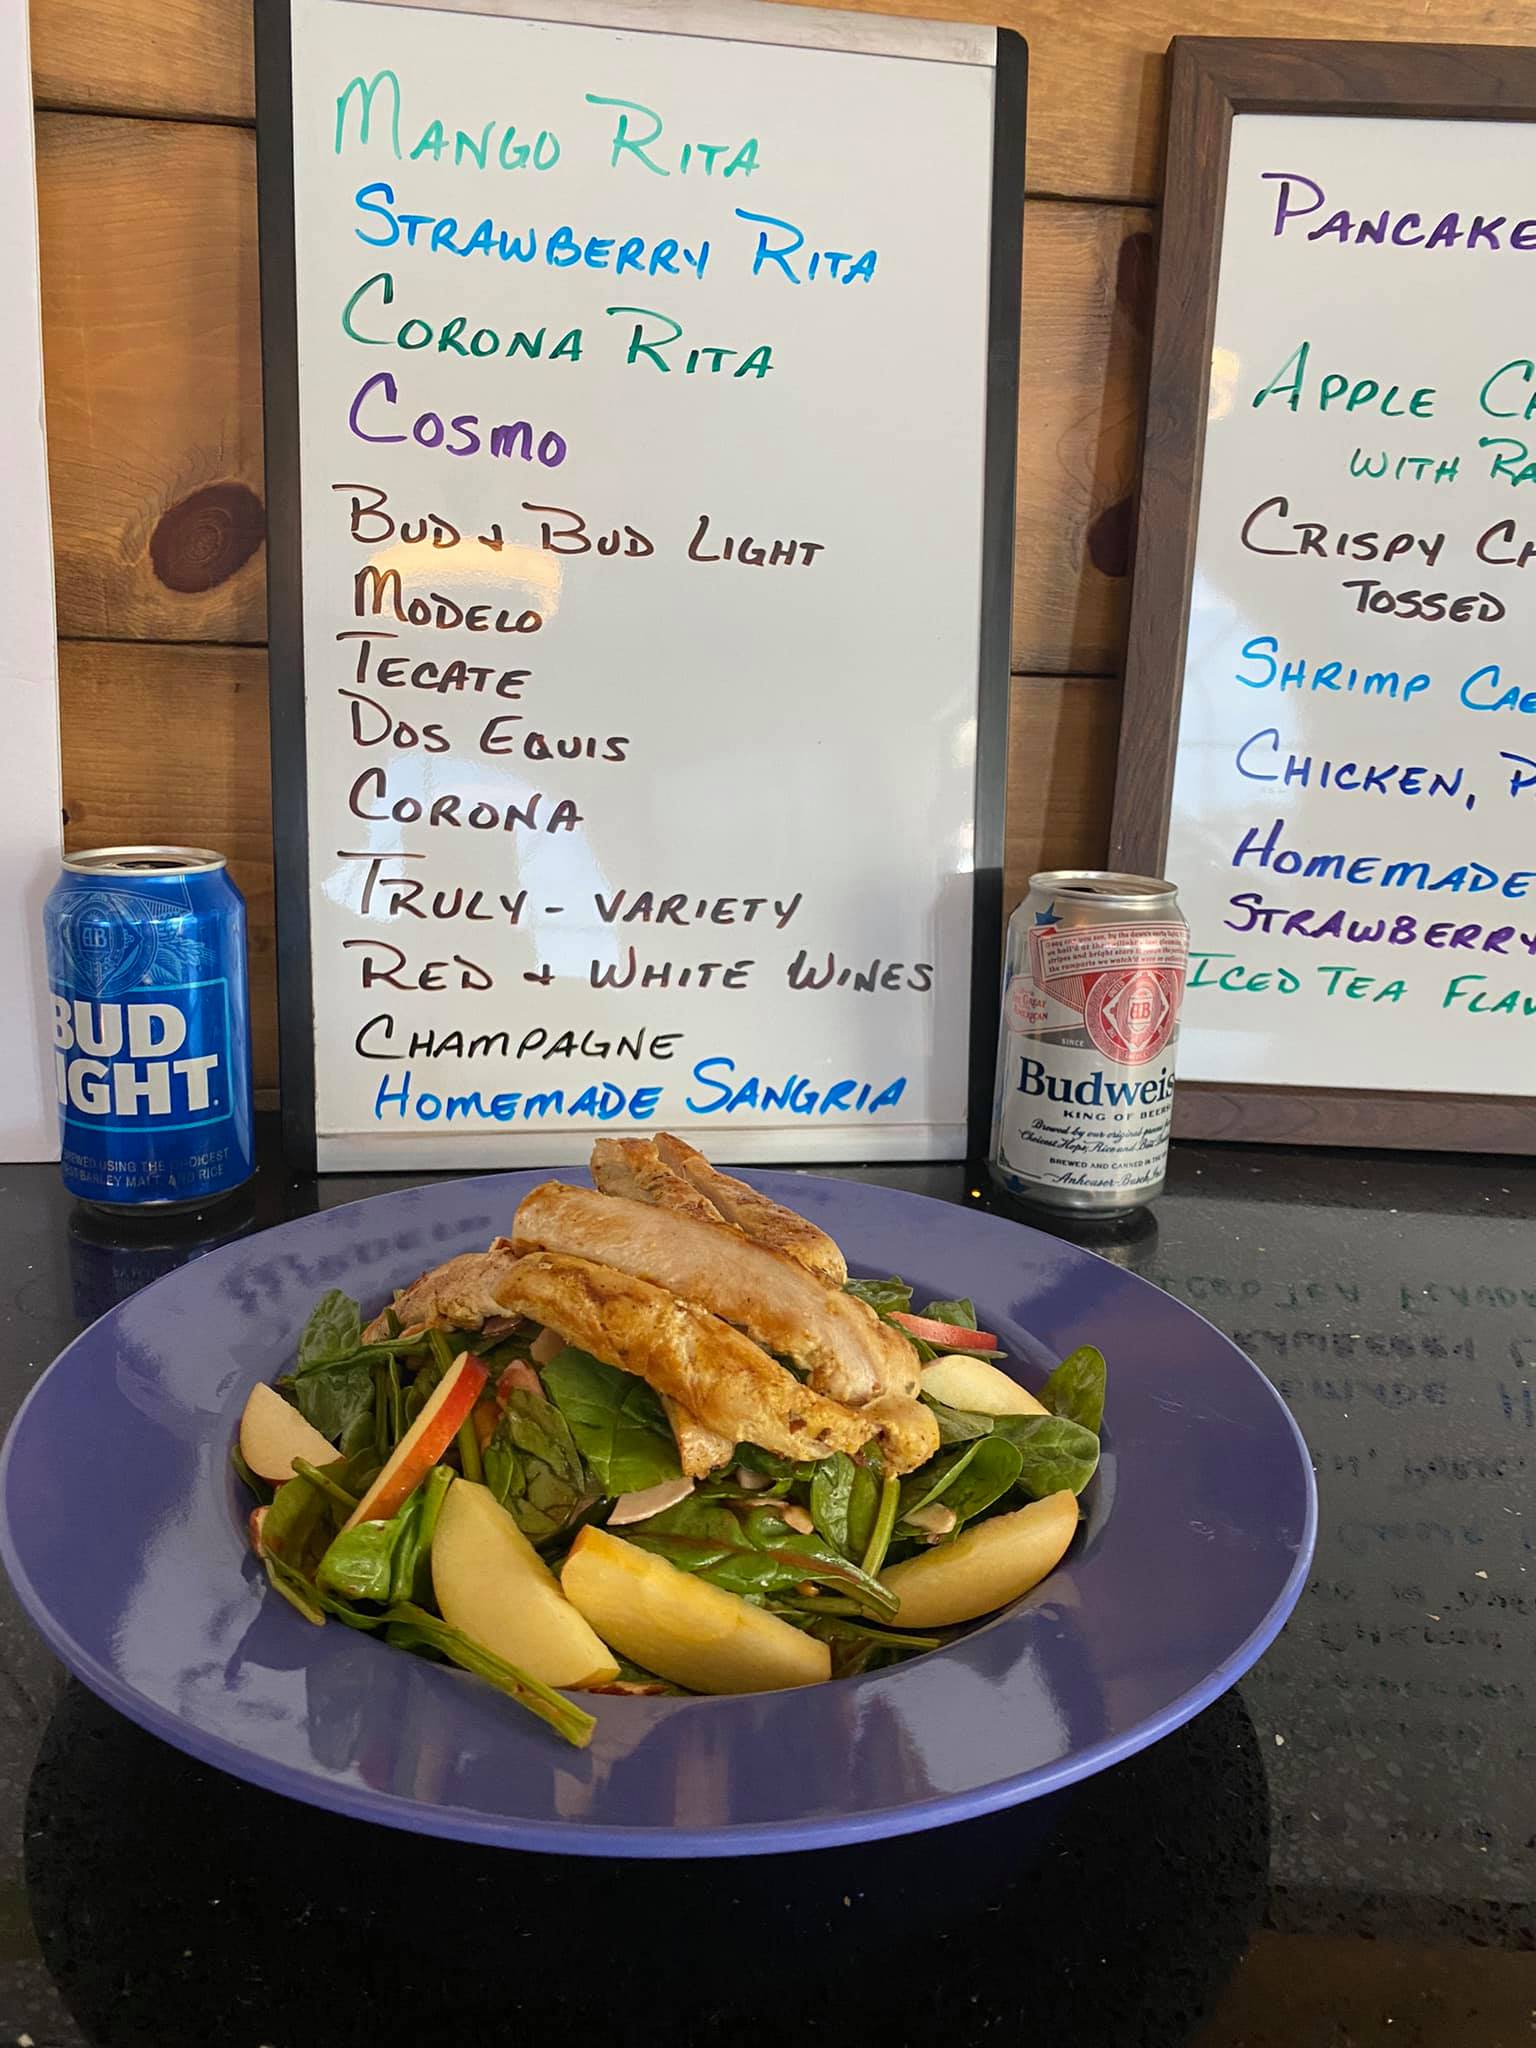 Mango Rita
Strawberry Rita
Corona Rita
Cosmo
Bud & Bud Light
Modelo
Tecate
Dos Equis
Corona
Truly - Variety
Red & White Wines
Champagne
Homemade Sangria
Pancake
Apple
with
Crispy
Tossed
Shrimp
Chicken,
Homemade
Strawberry
Iced Tea
AB
BUD
IGHT.
BREWED USING THE CHOICEST
BARLEY MALT AND RICE
AB
SINCE
Budweis
KING OF BEERS
Brewed by our original
Choicest Hops, Rice and Best
BREWED AND CANNED IN THE
Anheuser-Busch, Inc